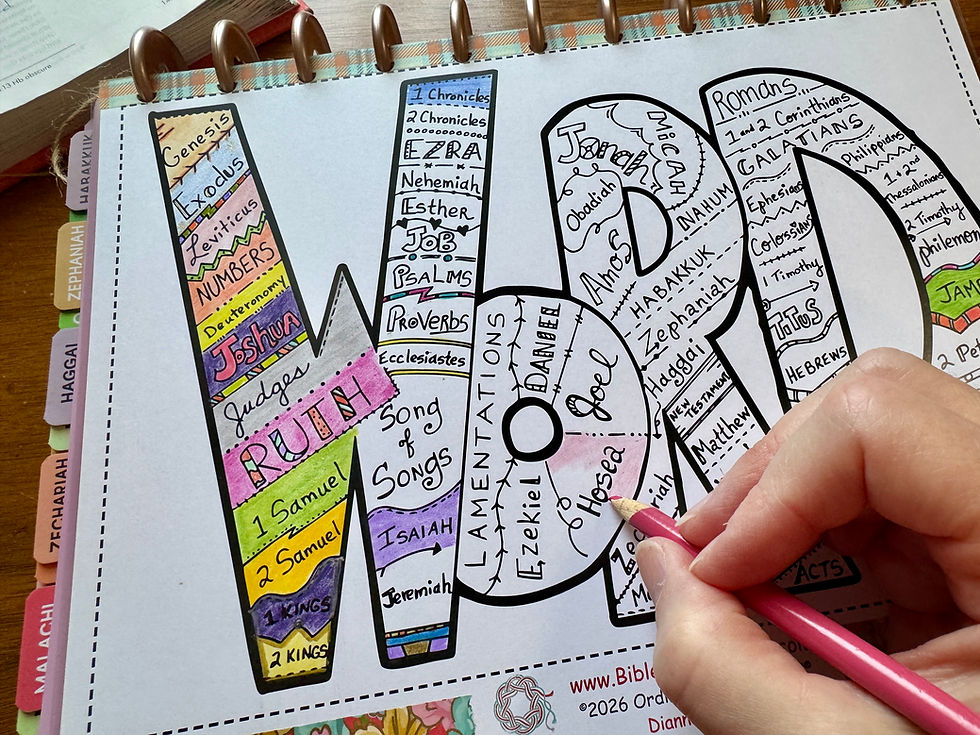 13 Nb obscure
HABAKKUK
ZEPHANIAH
HAGGAI
ZECHARIAH
MALACHI
Genesis
Exodus
Leviticus
NUMBERS
Deuteronomy
Joshua
Judges
RUTH
1 Samuel
2 Samuel
1 KINGS
2 KINGS
1 Chronicles
2 Chronicles
EZRA
Nehemiah
Esther
JOB
PSALMS
PROVERBS
Ecclesiastes
Song
of
Songs
ISAIAH
Jeremiah
LAMENTATIONS
Ezekiel
DANIEL
Hosea
Joel
Amos
Obadiah
Jonah
MICAH
NAHUM
HABAKKUK
Zephaniah
Haggai
NEW
TESTAMENT
Matthew
ACTS
Romans
1 and 2 Corinthians
GALATIANS
Ephesians
Philippians
Colossians
1 and 2
Thessalonians
Timothy
2 Timothy
TITUS
philemon
HEBREWS
www.Bible
©2026